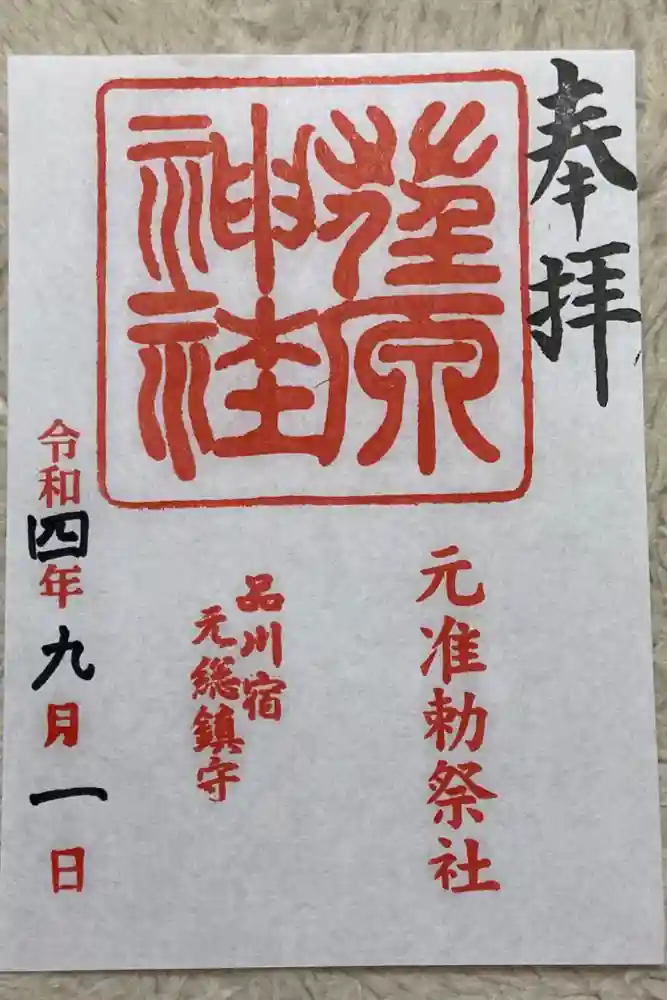 奉拝
荏原
神社
元准勅祭社
品川宿
元総鎮守
令和四年九月一日